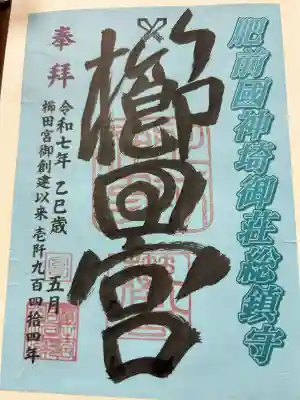 肥前國神埼御荘総鎮守
櫛田宮
奉拝
令和七年 乙巳歳 五月
櫛田宮御創建以来壱阡九百四拾四年